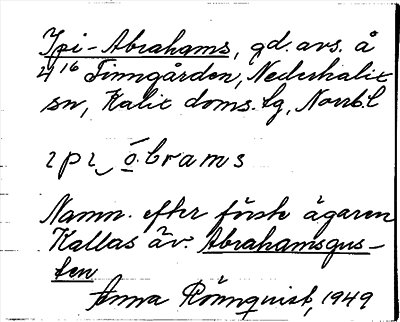 Ipi-Abrahams, gd. avs. å
4¹⁶ Finngården, Nederkalix
sn, Kalix doms. tg, Norrb. l
ɩpɩ ó̲brams
Namn. efter förste ägaren
Kallas äv. Abrahamsgus-
ten
Anna Rönnquist, 1949